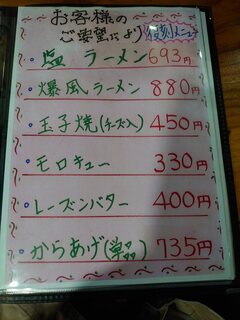 お客様の
ご要望により 復刻メニュー
塩 ラーメン 693円
爆風ラーメン 880円
玉子焼(チーズ入) 450円
モロキュー 330円
レーズンバター 400円
からあげ(単品) 735円